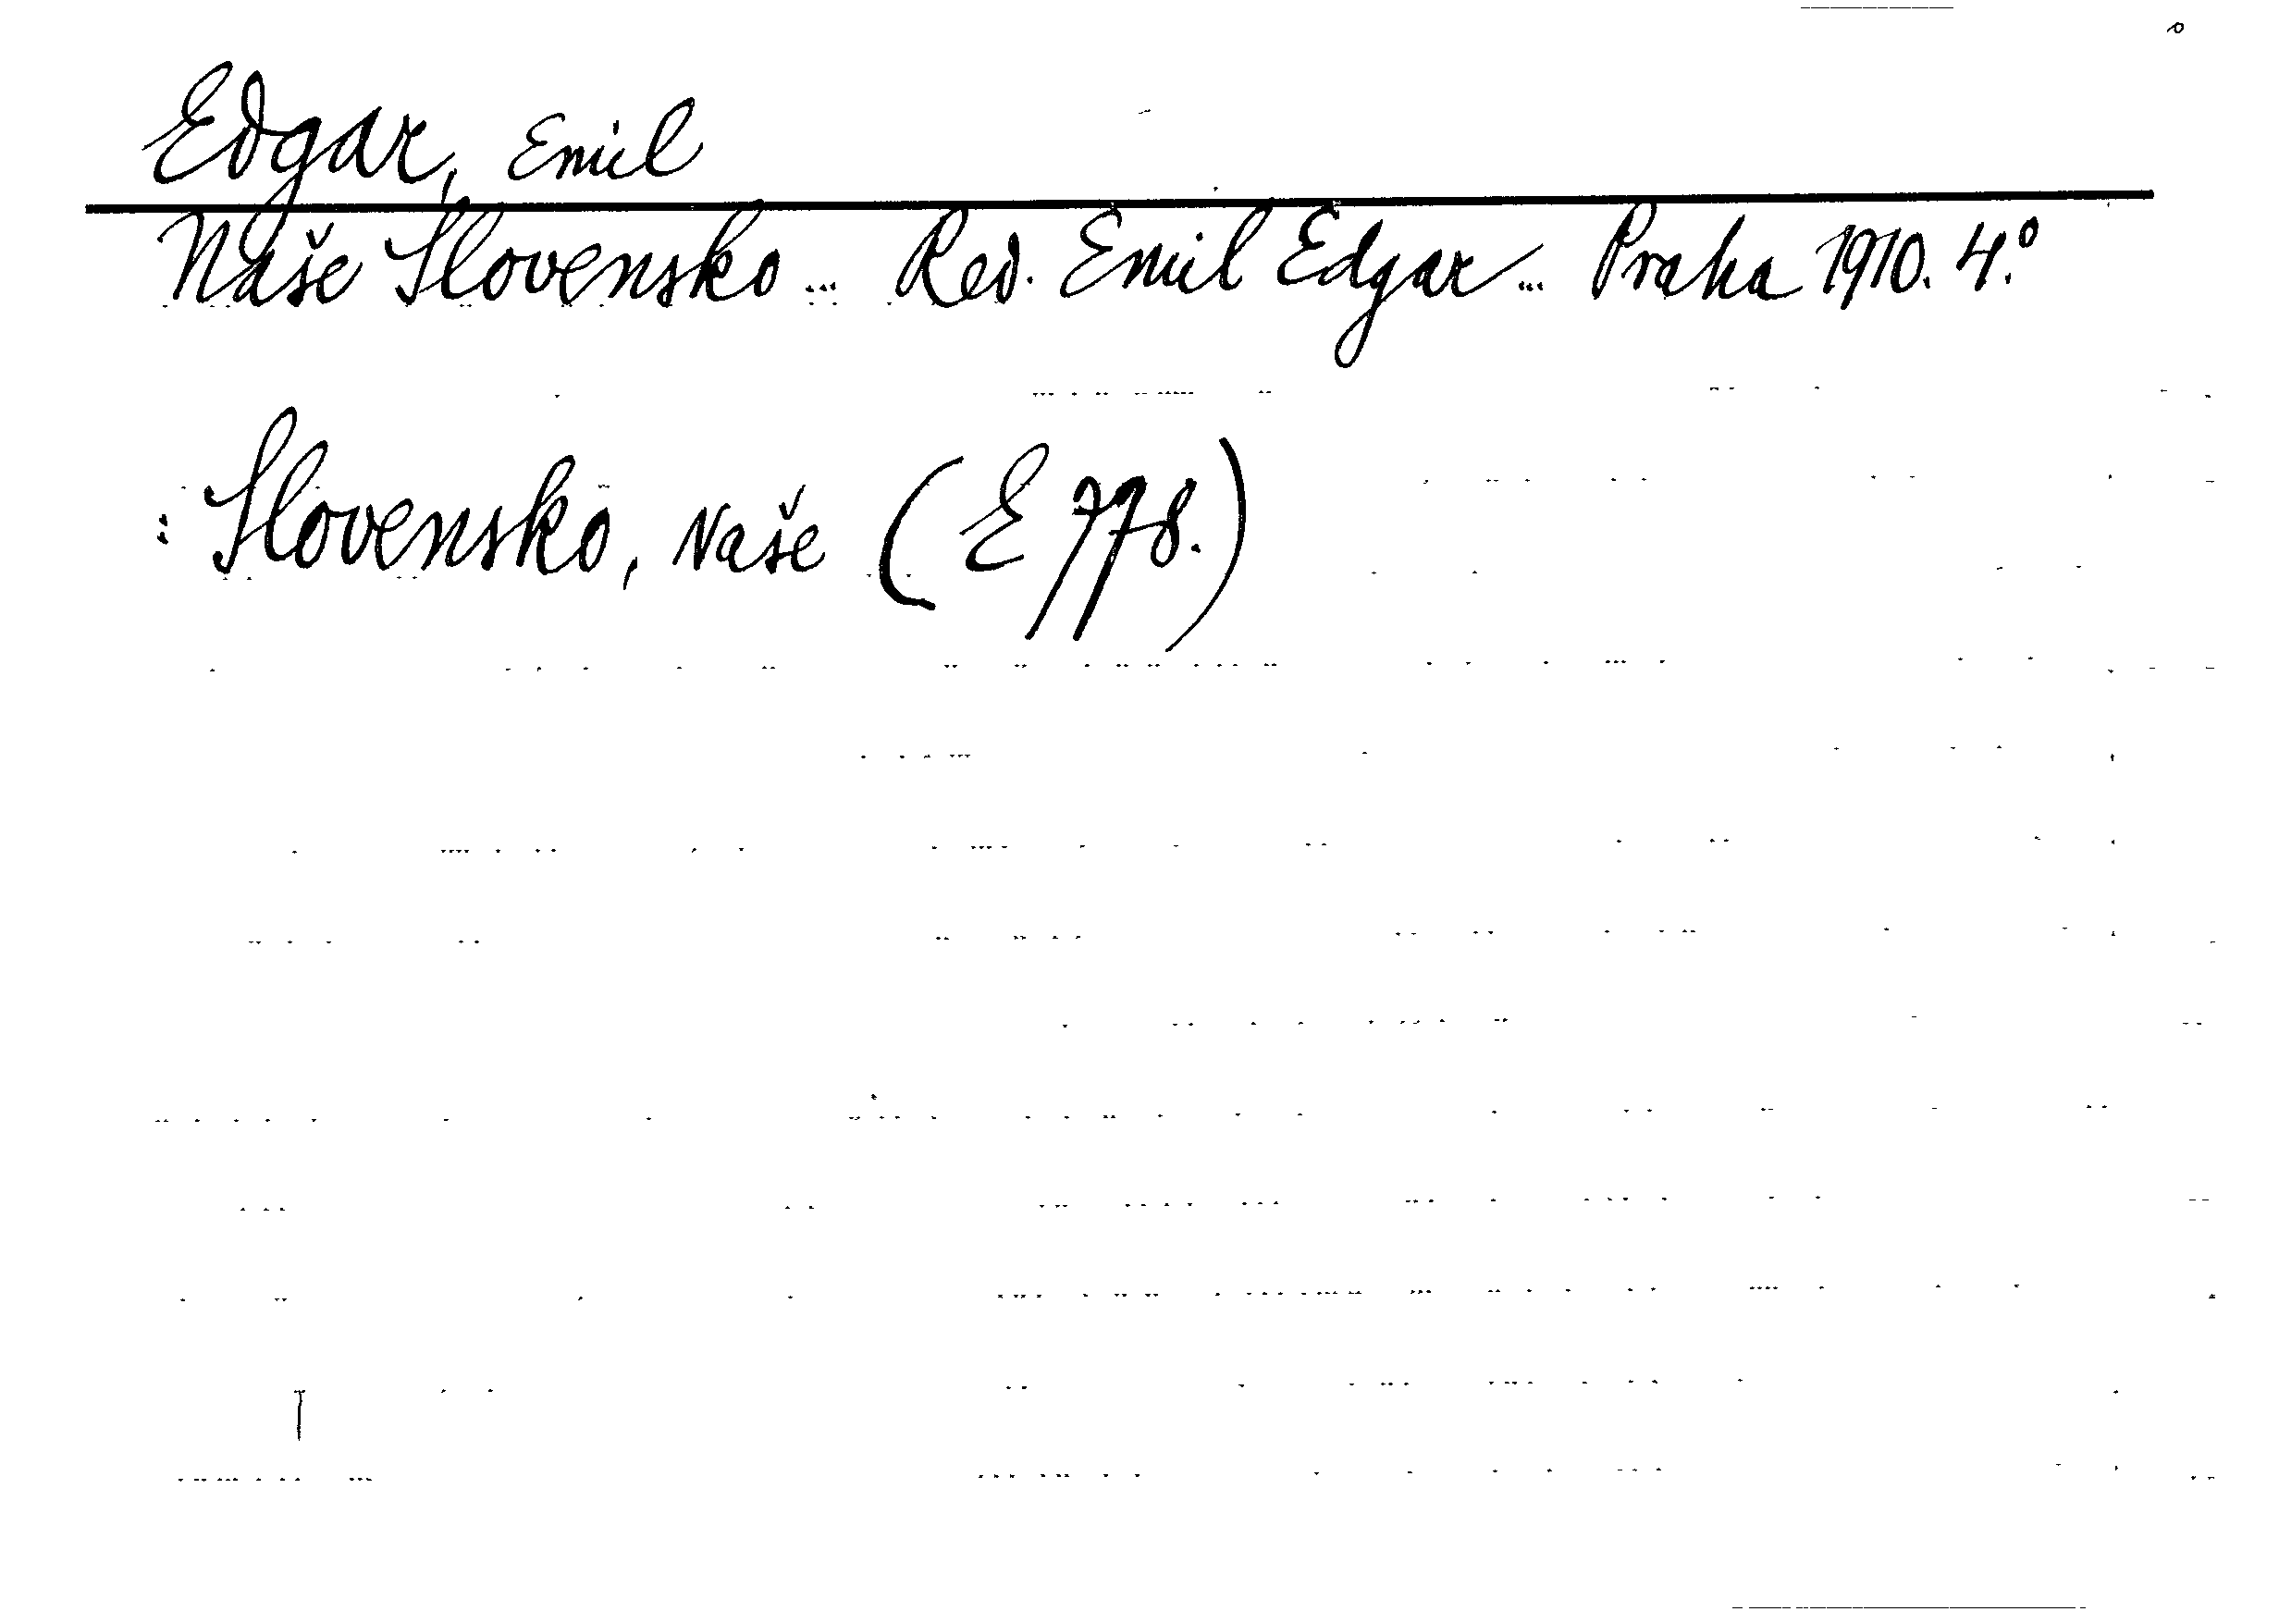 Edgar, Emil
Naše Slovensko ... Red. Emil Edgar ... Praha 1910. 4.°
: Slovensko, Naše (E 778.)